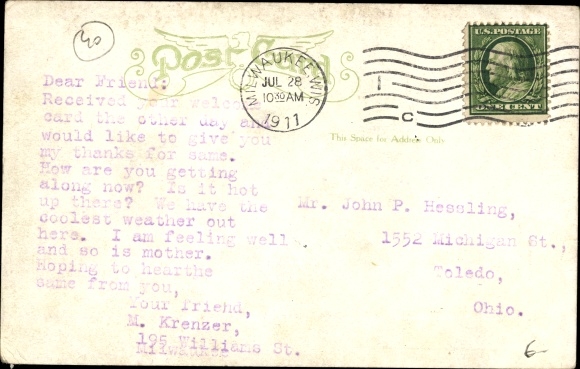 40
Post Card
MILWAUKEE, WIS.
JUL 28
10 30 AM
1911
C
U.S. POSTAGE
ONE CENT
This Space for Address Only
Dear Friend:
Received your welcome
card the other day and
would like to give you
my thanks for same.
How are you getting
along now? Is it hot
up there? We have the
coolest weather out
here. I am feeling well
and so is mother.
Hoping to hearthe
same from you,
Your friend,
M. Krenzer,
195 Williams St.
Milwaukee
Mr. John P. Hessling,
1552 Michigan St.,
Toledo,
Ohio.
6-